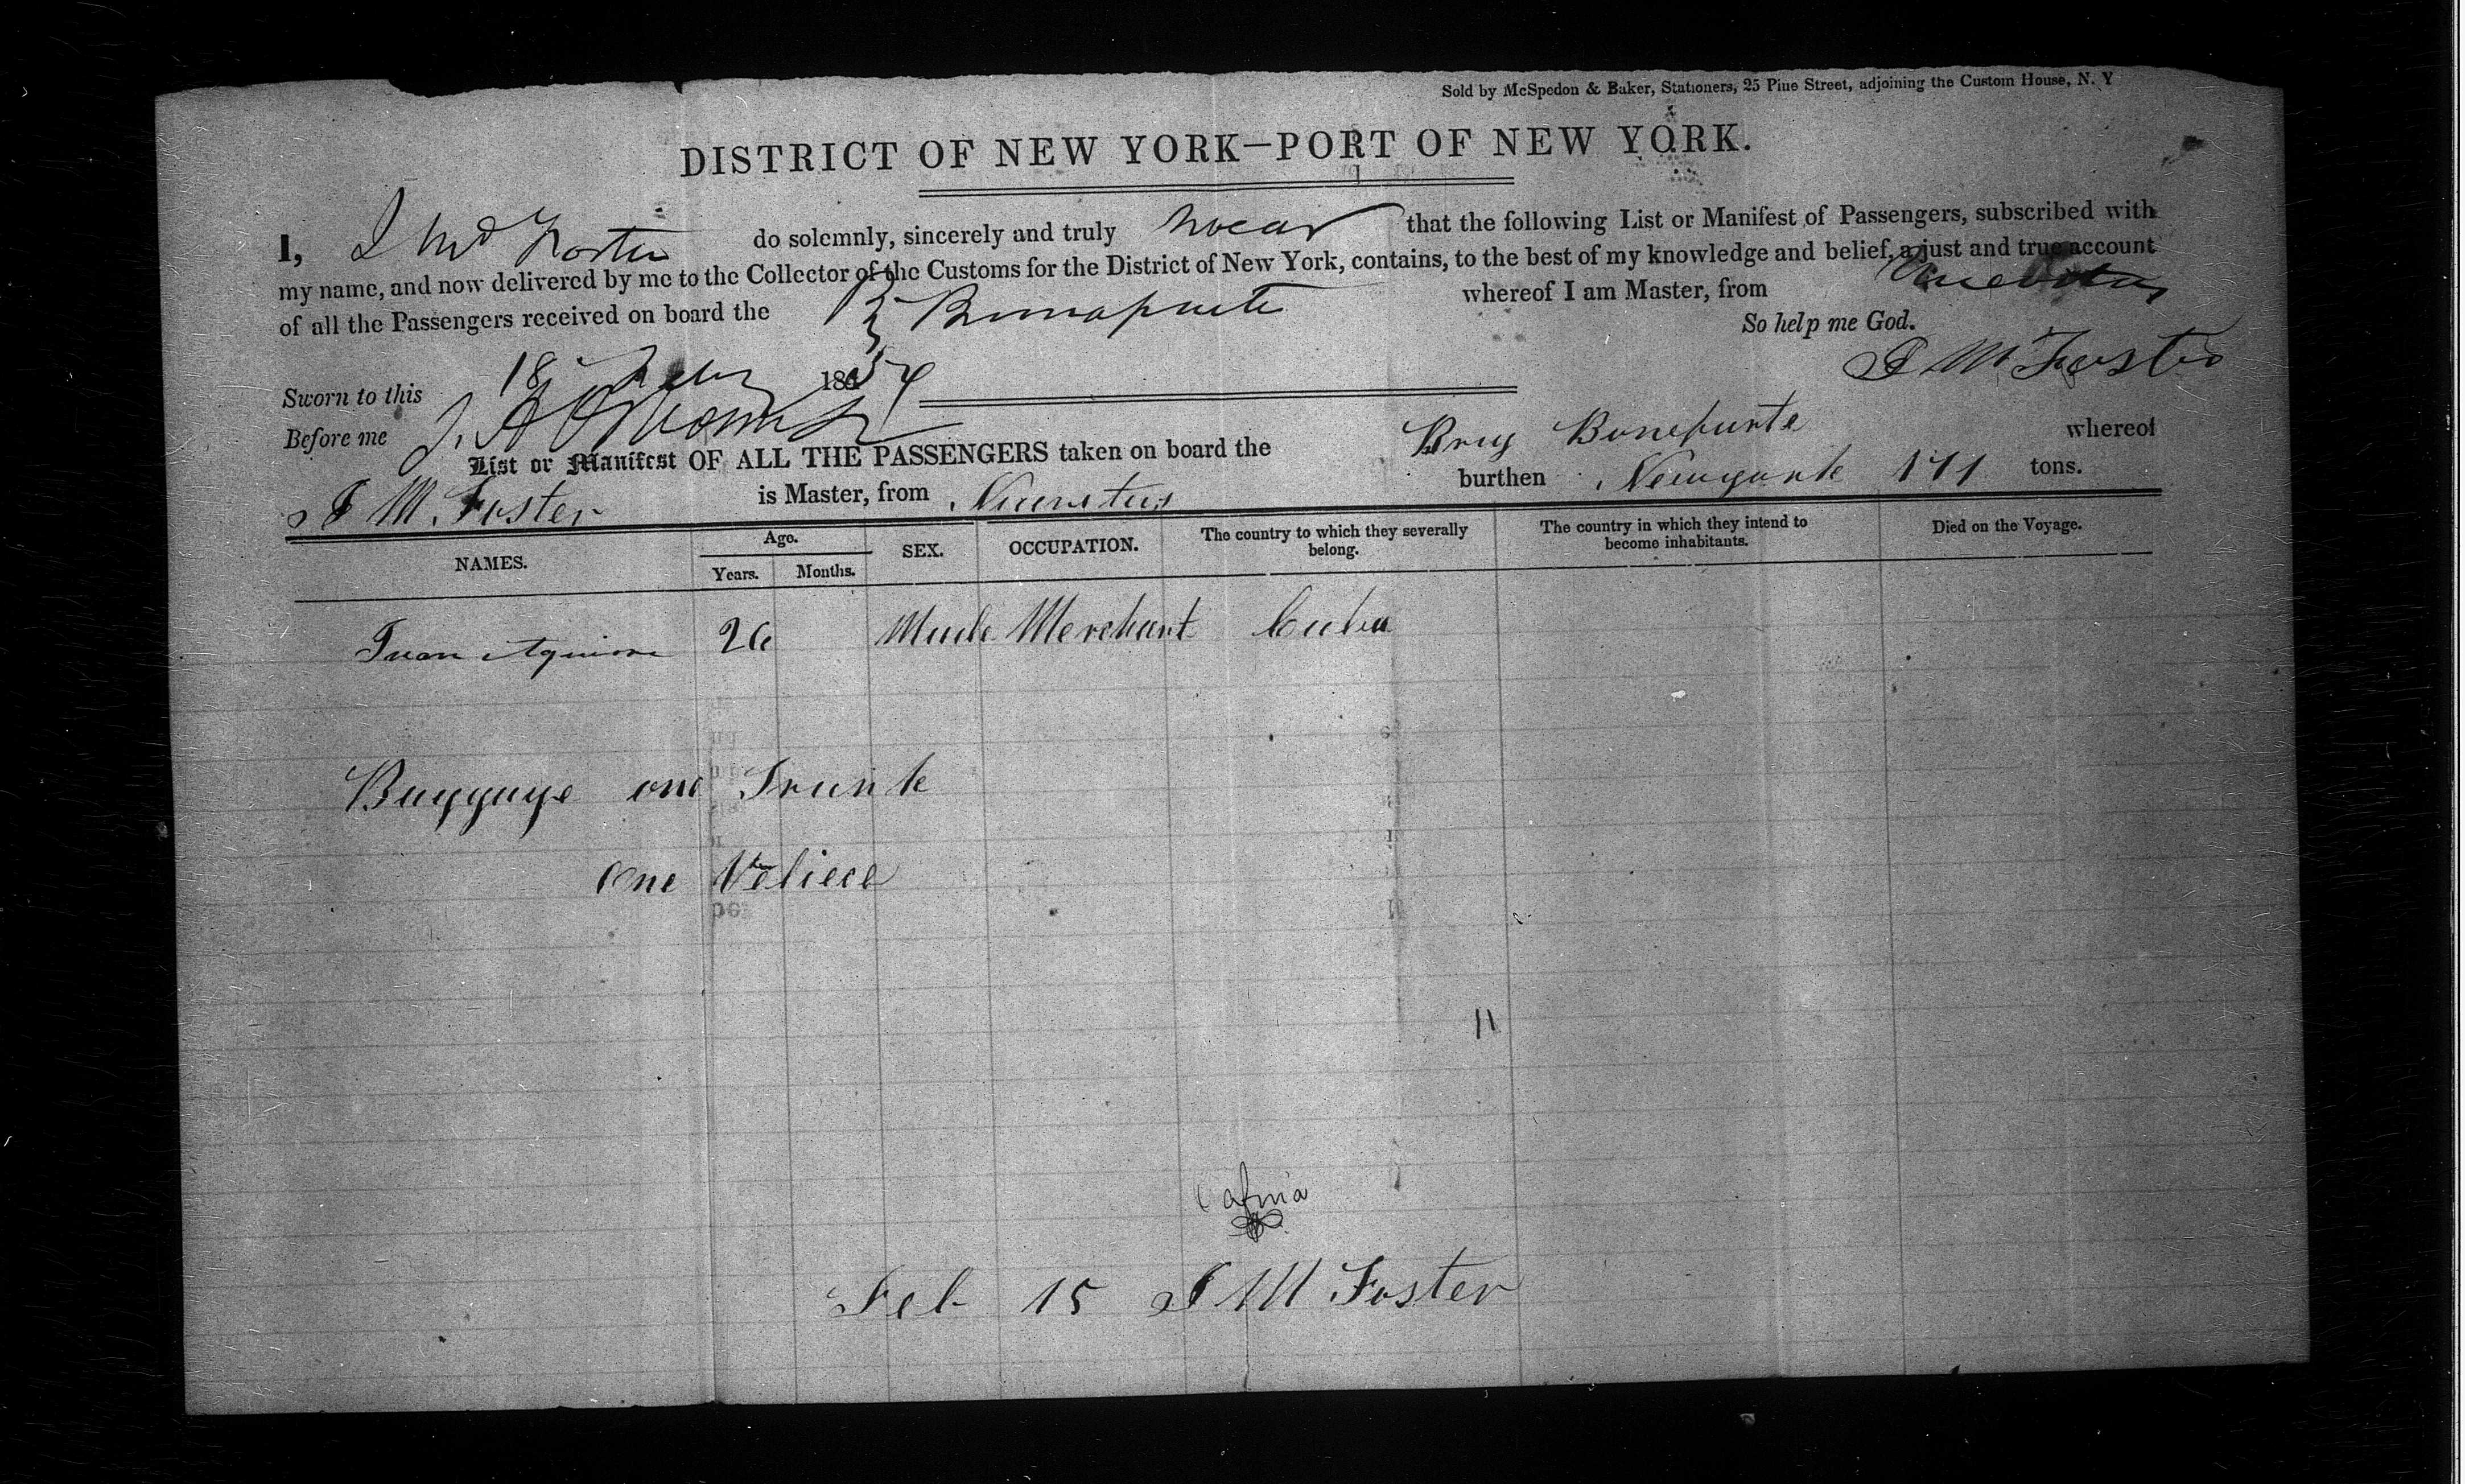 Sold by McSpedon & Baker, Stationers, 25 Pine Street, adjoining the Custom House, N. Y
DISTRICT OF NEW YORK—PORT OF NEW YORK.
I, J M Foster do solemnly, sincerely and truly swear that the following List or Manifest of Passengers, subscribed with
my name, and now delivered by me to the Collector of the Customs for the District of New York, contains, to the best of my knowledge and belief, a just and true account
of all the Passengers received on board the B Bonaparte whereof I am Master, from
So help me God.
Sworn to this 18 Feby 1854
J M Foster
Before me
List or Manifest OF ALL THE PASSENGERS taken on board the Brig Boneparte whereof
J M. Foster is Master, from burthen Newyork 171 tons.
NAMES. Age. Years. Months. SEX. OCCUPATION. The country to which they severally belong. The country in which they intend to become inhabitants. Died on the Voyage.
Juan 26 Male Merchant Cuba
Baggage one Trunk
One Veliece
11
Feb 15 J M Foster